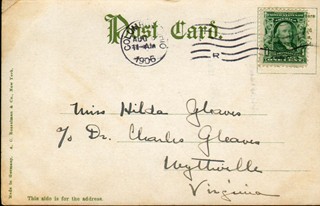 Post Card.
AUG
11-AM
1906
R
Miss Hilda Gleaves
c/o Dr. Charles Gleaves
Wytheville
Virginia
This side is for the address.
Made in Germany.
New York.